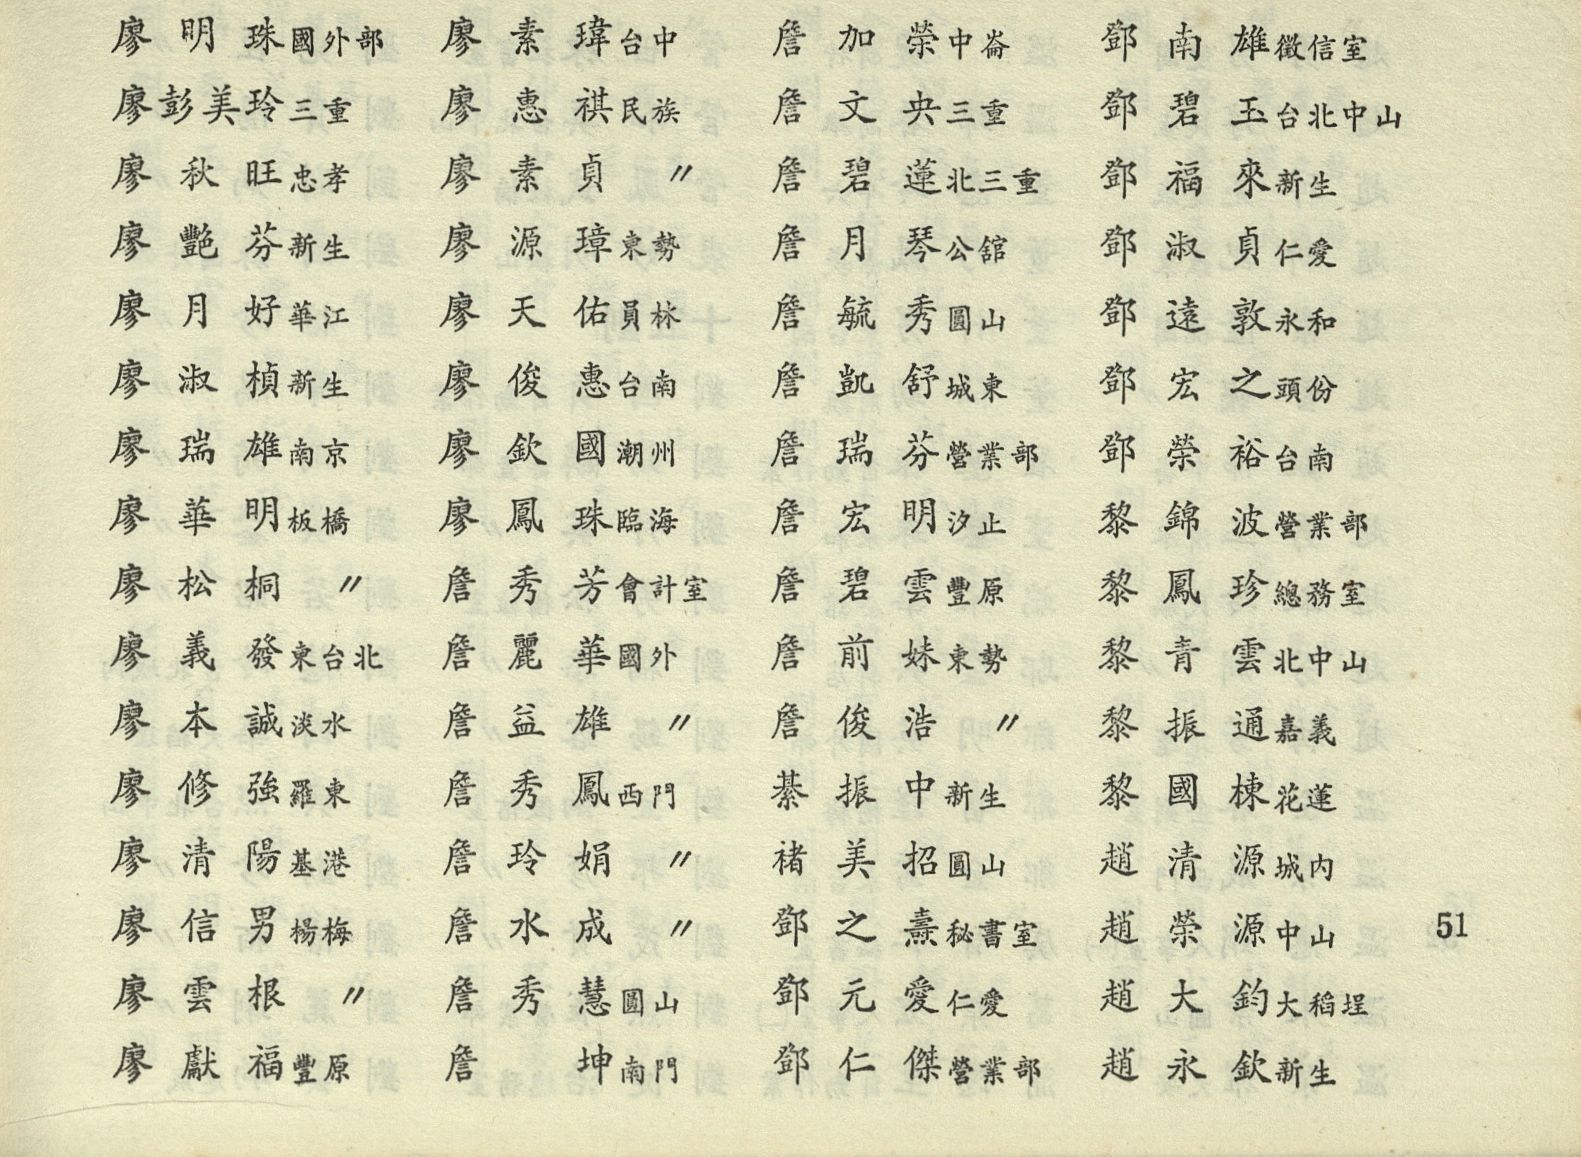 廖明珠國外部 廖素瑋台中 詹加榮中崙 鄧南雄徵信室
廖彭美玲三重 廖惠祺民族 詹文央三重 鄧碧玉台北中山
廖秋旺忠孝 廖素貞〃 詹碧蓮北三重 鄧福來新生
廖艷芬新生 廖源璋東勢 詹月琴公舘 鄧淑貞仁愛
廖月好華江 廖天佑員林 詹毓秀圓山 鄧遠敦永和
廖淑楨新生 廖俊惠台南 詹凱舒城東 鄧宏之頭份
廖瑞雄南京 廖欽國潮州 詹瑞芬營業部 鄧榮裕台南
廖華明板橋 廖鳳珠臨海 詹宏明汐止 黎錦波營業部
廖松桐〃 詹秀芳會計室 詹碧雲豐原 黎鳳珍總務室
廖義發東台北 詹麗華國外 詹前妹東勢 黎青雲北中山
廖本誠淡水 詹益雄〃 詹俊浩〃 黎振通嘉義
廖修強羅東 詹秀鳳西門 綦振中新生 黎國棟花蓮
廖清陽基港 詹玲娟〃 褚美招圓山 趙清源城內
廖信男楊梅 詹水成〃 鄧之燾秘書室 趙榮源中山 51
廖雲根〃 詹秀慧圓山 鄧元愛仁愛 趙大鈞大稻埕
廖獻福豐原 詹坤南門 鄧仁傑營業部 趙永欽新生